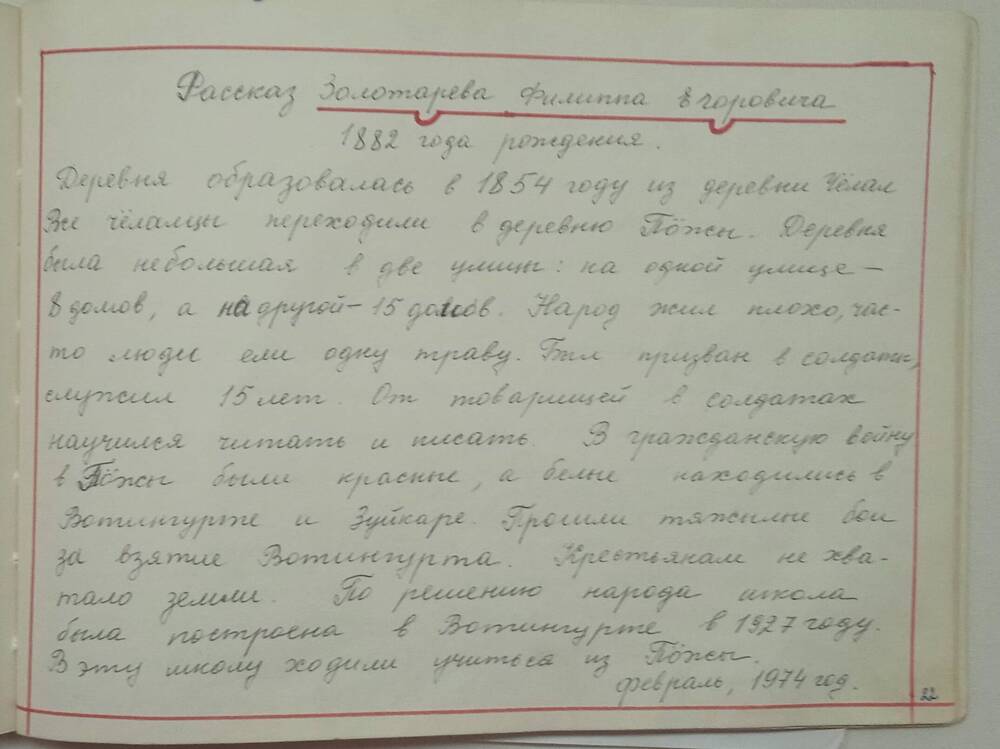 Рассказ Золотарёва Филиппа Егоровича
1882 года рождения.
Деревня образовалась в 1854 году из деревни Чёлал
Все чёламцы переходили в деревню Пӧжы. Деревня
была небольшая в две улицы: на одной улице –
8 домов, а на другой – 15 домов. Народ жил плохо, час-
то люди ели одну траву. Был призван в солдаты,
служил 15 лет. От товарищей в солдатах
научился читать и писать. В гражданскую войну
в Пӧжы были красные, а белые находились в
Вотингурте и Зуйкаре. Прошли тяжилые бои
за взятие Вотингурта. Крестьянам не хва-
тало земли. По решению народа школа
была построена в Вотингурте в 1927 году.
В эту школу ходили учиться из Пӧжы.
февраль, 1974 год.
22